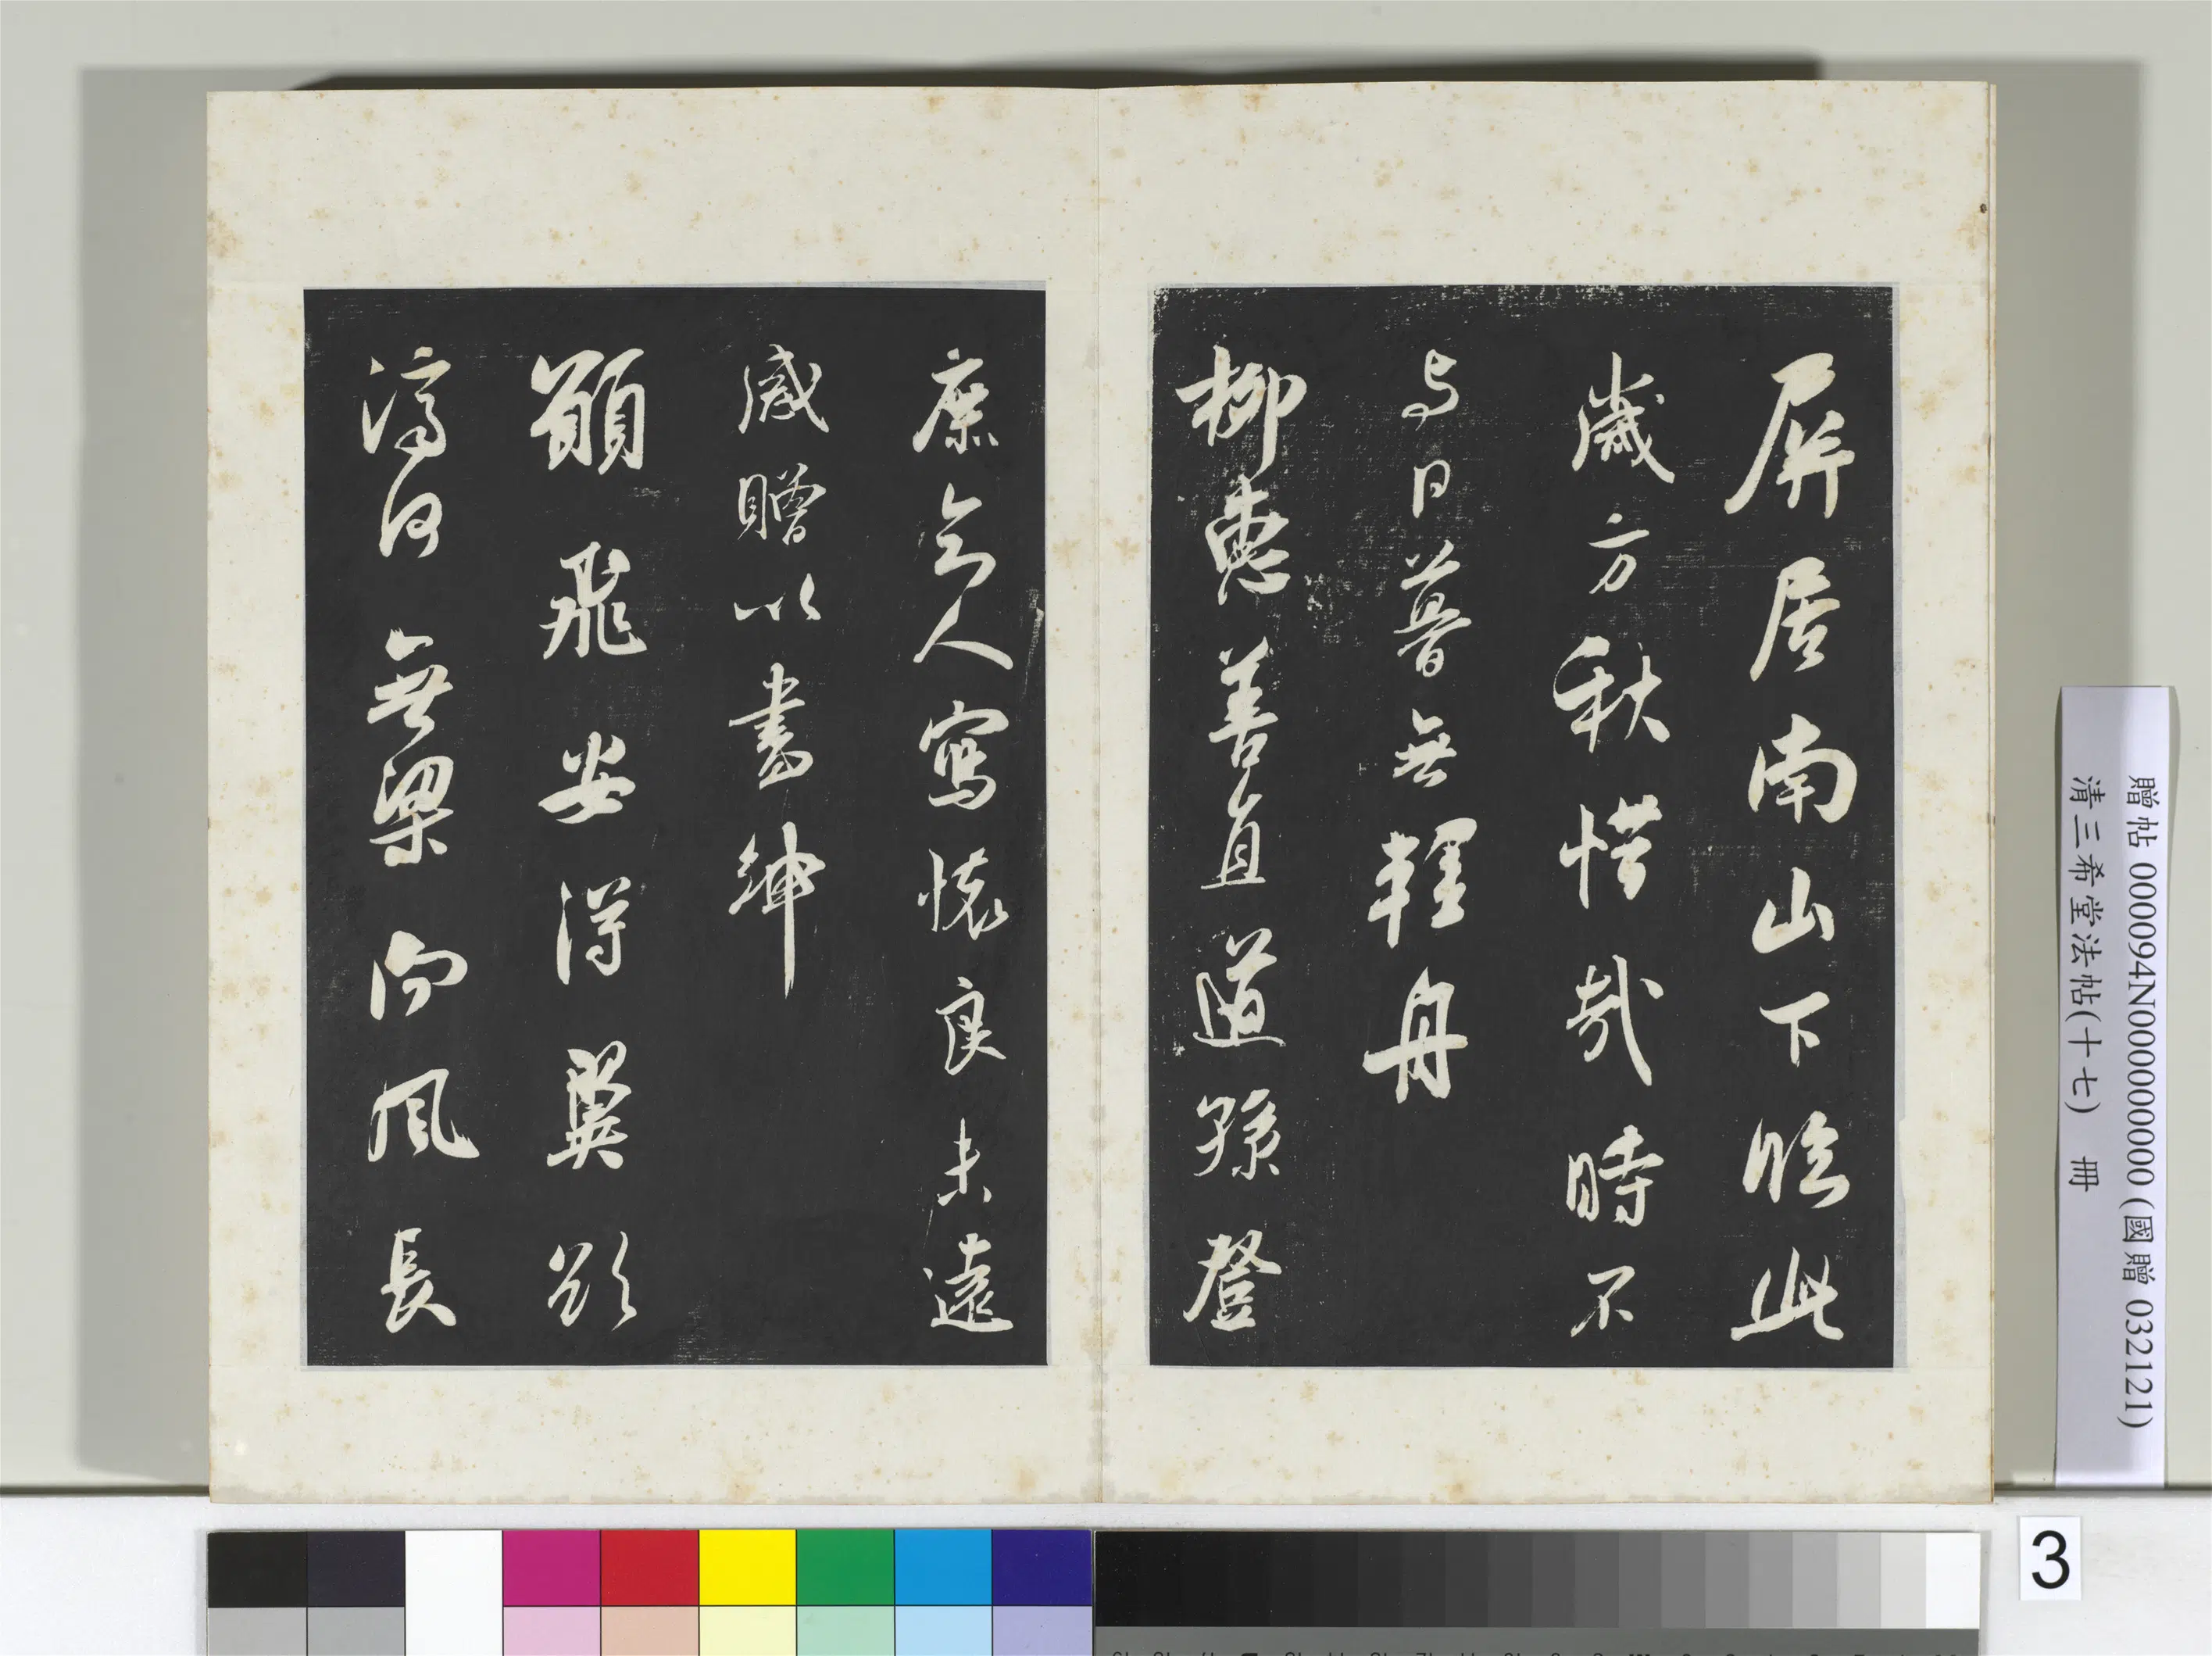 屏居南山下臨此
歲方秋惜哉時不
與日暮無輕舟
柳惠善直道孫登
庶知人寫懷良未遠
感贈以書紳
願飛安得翼欲
濟河無梁向風長
贈帖 000094N000000000 (國贈 032121)
清三希堂法帖(十七) 冊
3